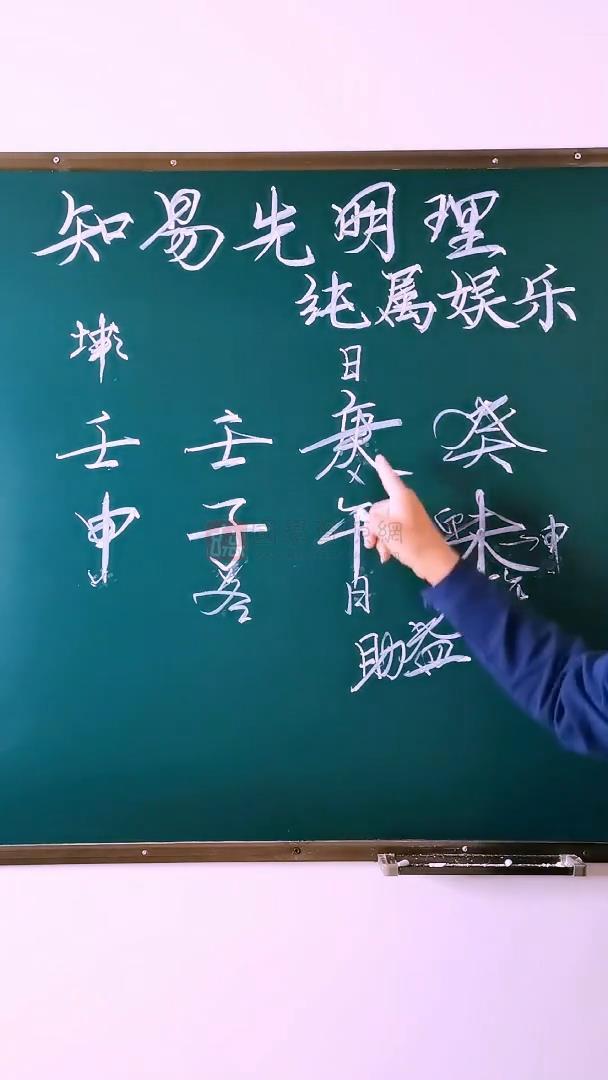 知易先明理
纯属娱乐
坤
日
壬 壬 庚 癸
申 子 午 未 申
冬 日
助益